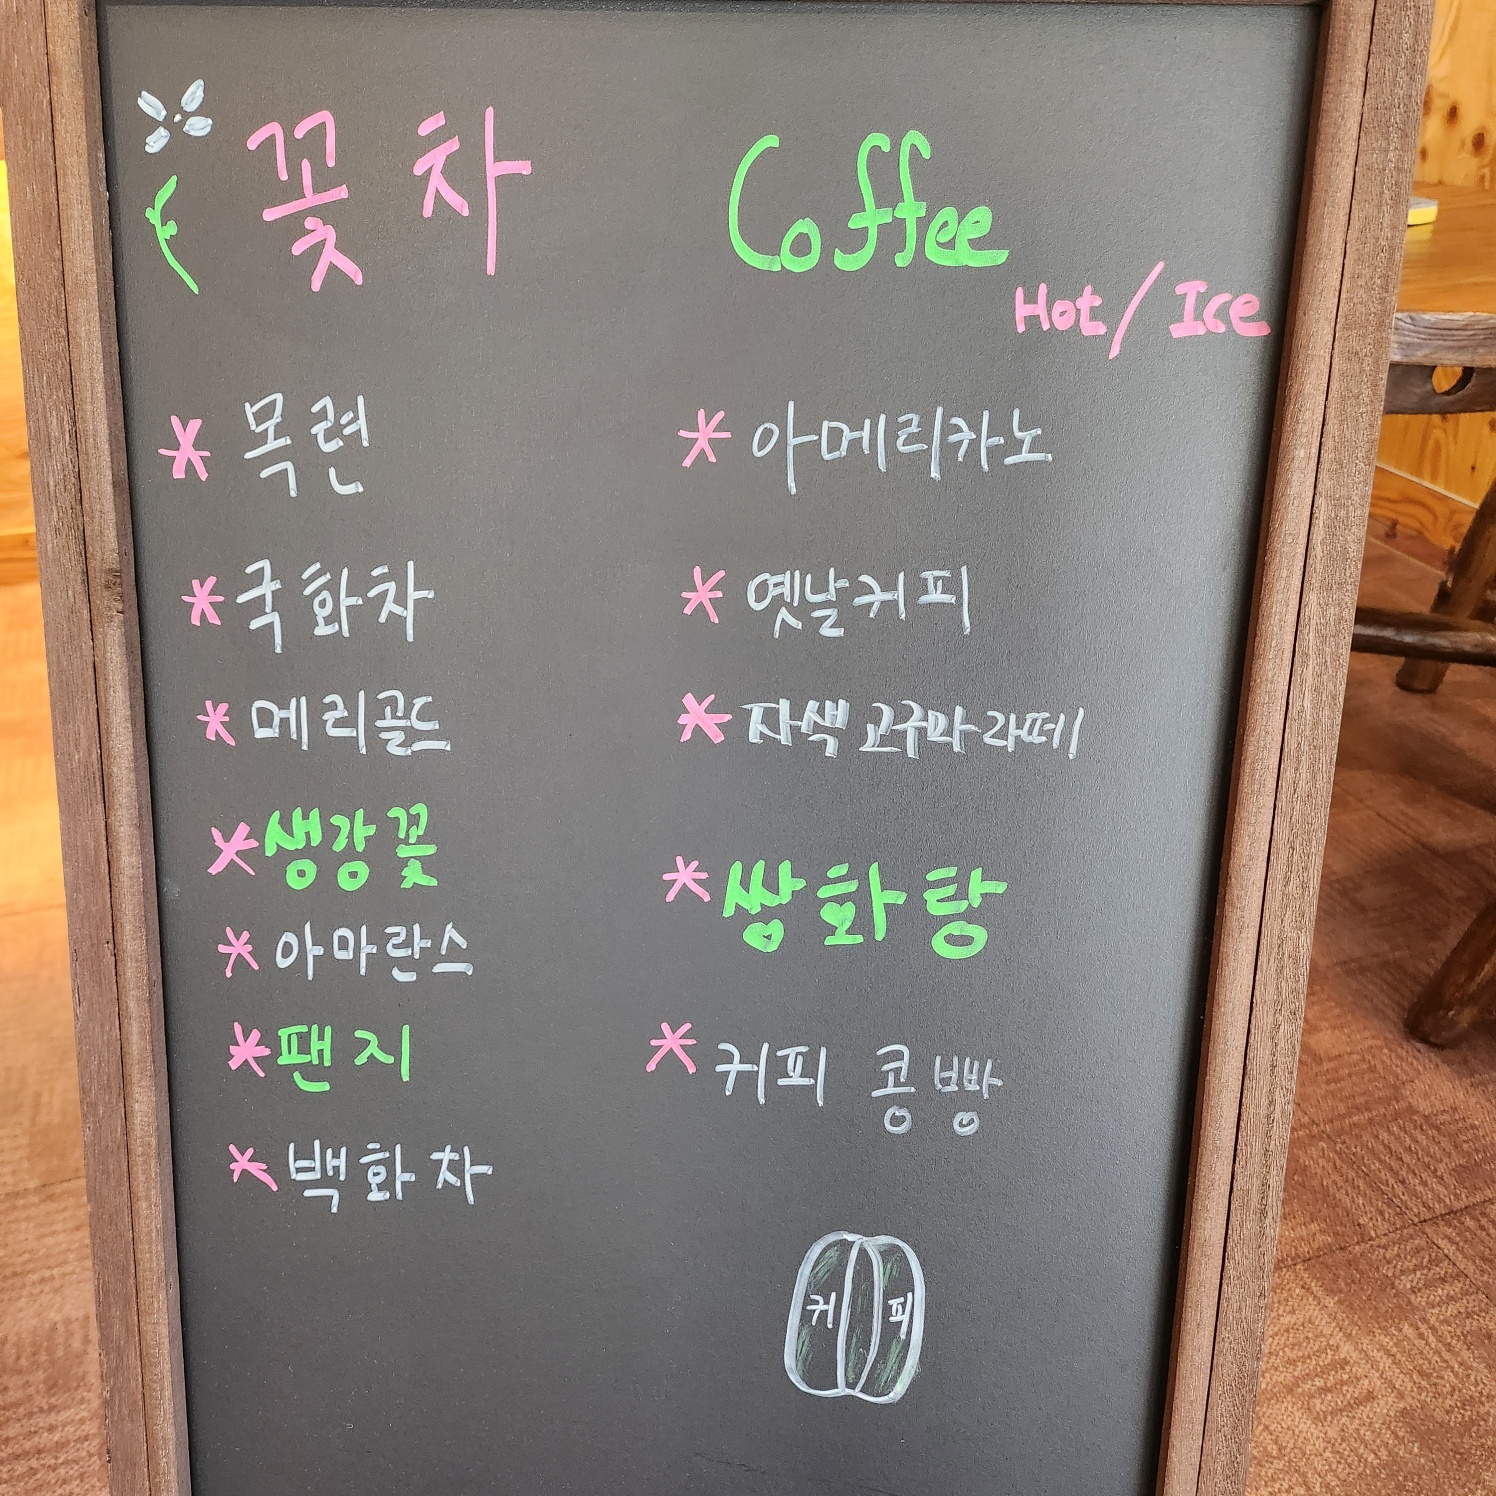 꽃차
목련
국화차
메리골드
생강꽃
아마란스
팬지
백화차
Coffee
Hot / Ice
아메리카노
옛날커피
자색고구마라떼
쌍화탕
커피 콩빵
커피